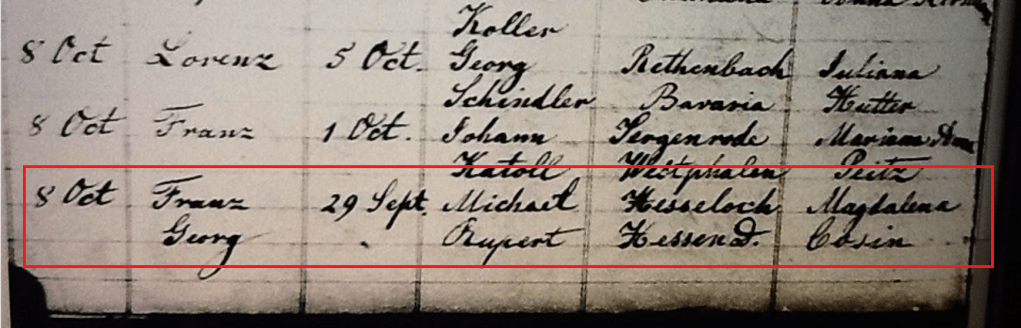 Koller
8 Oct Lorenz 5 Oct. Georg Rethenbach Juliana
Schindler Bavaria Hutter
8 Oct Franz 1 Oct. Johann Sergenrode Mariann
Katoll Westphalen Peitz
8 Oct Franz 29 Sept. Michael Hesseloch Magdalena
Georg Rupert Hessen D. Cosin